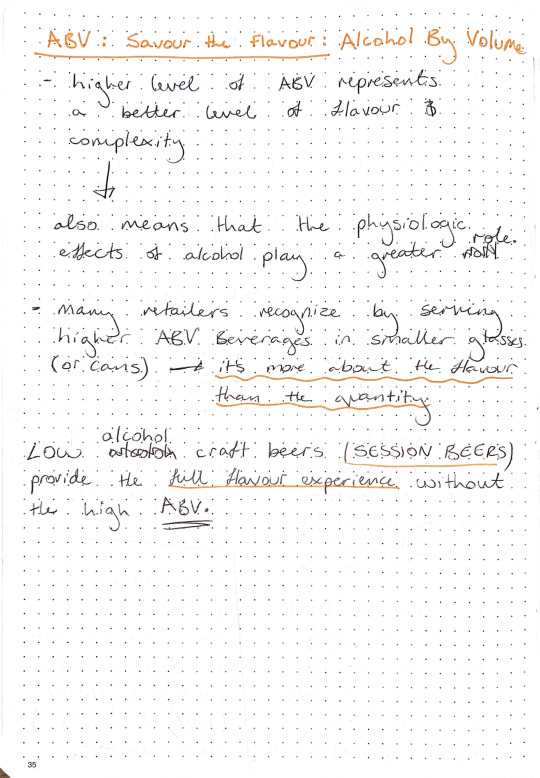 ABV: Savour the Flavour: Alcohol By Volume
- higher level of ABV represents
a better level of flavour &
complexity
↓
also means that the physiologic
effects of alcohol play a greater role.
- Many retailers recognize by serving
higher ABV Beverages in smaller glasses
(or cans) → it's more about the flavour
than the quantity.
Low alcohol craft beers (SESSION BEERS)
provide the full flavour experience without
the high ABV.
35